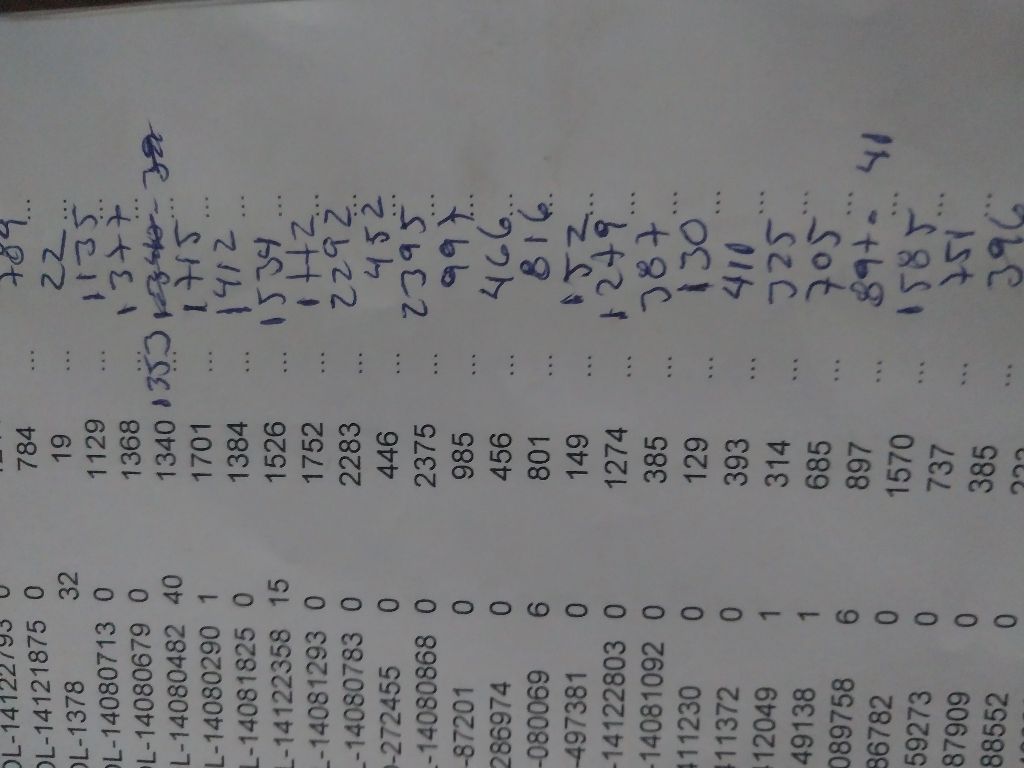 OL-14122793 0
OL-14121875 0 784 ... 789 ...
OL-1378 32 19 ... 22 ...
OL-14080713 0 1129 ... 1135 ...
OL-14080679 0 1368 ... 1377 ...
L-14080482 40 1340 ... 1353 ...
L-14080290 1 1701 ... 1715 ...
L-14081825 0 1384 ... 1412 ...
L-14122358 15 1526 ... 1534 ...
L-14081293 0 1752 ... 1772 ...
L-14080783 0 2283 ... 2292 ...
-272455 0 446 ... 452 ...
-14080868 0 2375 ... 2395 ...
-87201 0 985 ... 997 ...
286974 0 456 ... 466 ...
-080069 6 801 ... 816 ...
-497381 0 149 ... 152 ...
-14122803 0 1274 ... 1279 ...
-14081092 0 385 ... 387 ...
411230 0 129 ... 130 ...
411372 0 393 ... 410 ...
412049 1 314 ... 325 ...
49138 1 685 ... 705 ...
089758 6 897 ... 897 - 41 ...
86782 0 1570 ... 1585 ...
59273 0 737 ... 751 ...
87909 0 385 ... 396 ...
88552 0